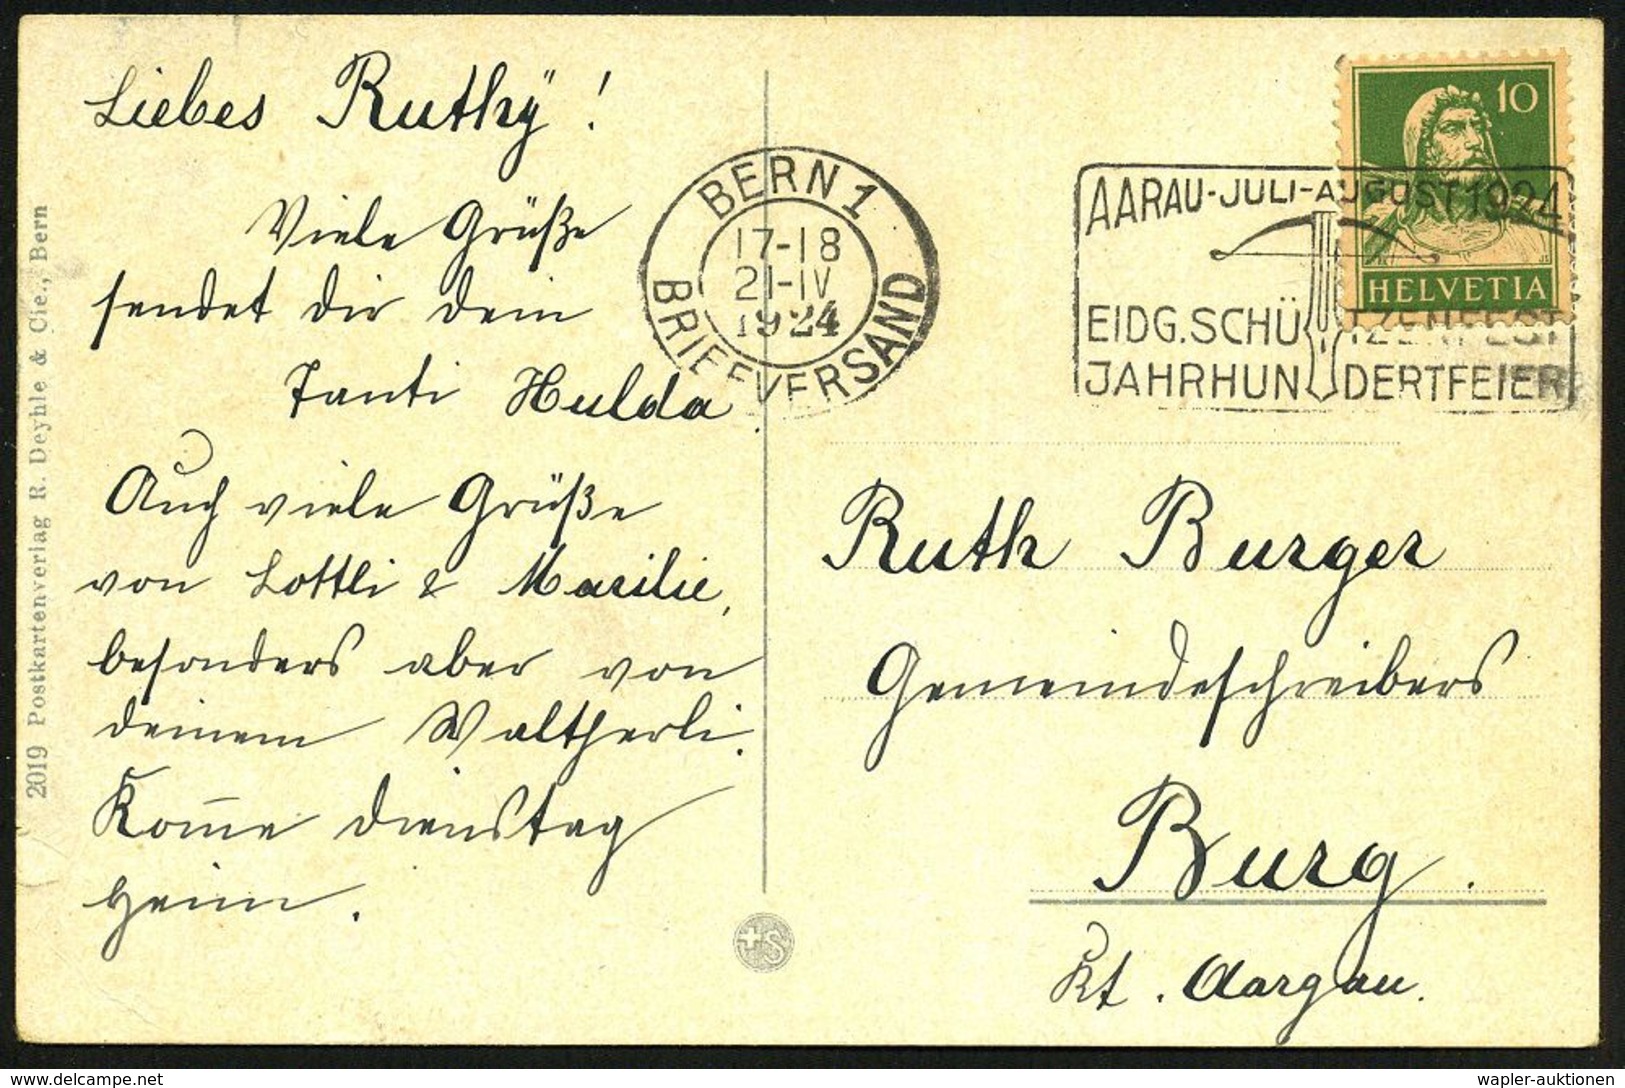 Liebes Ruthÿ!
Viele Grüße
sendet dir dein
Tanti Hulda.
Auch viele Grüße
von Lottli & Marilie,
besonders aber von
deinem Waltherli.
Kom̅e Dienstag
heim.
2019 Postkartenverlag R. Deyhle & Cie., Bern
BERN 1
17-18
21-IV
1924
BRIEFVERSAND
AARAU-JULI-AUGUST 1924
EIDG. SCHÜTZENFEST
JAHRHUNDERTFEIER
10
HELVETIA
Ruth Burger
Gemeindeschreibers
Burg.
Kt. Aargau.
+S
wapler-auktionen